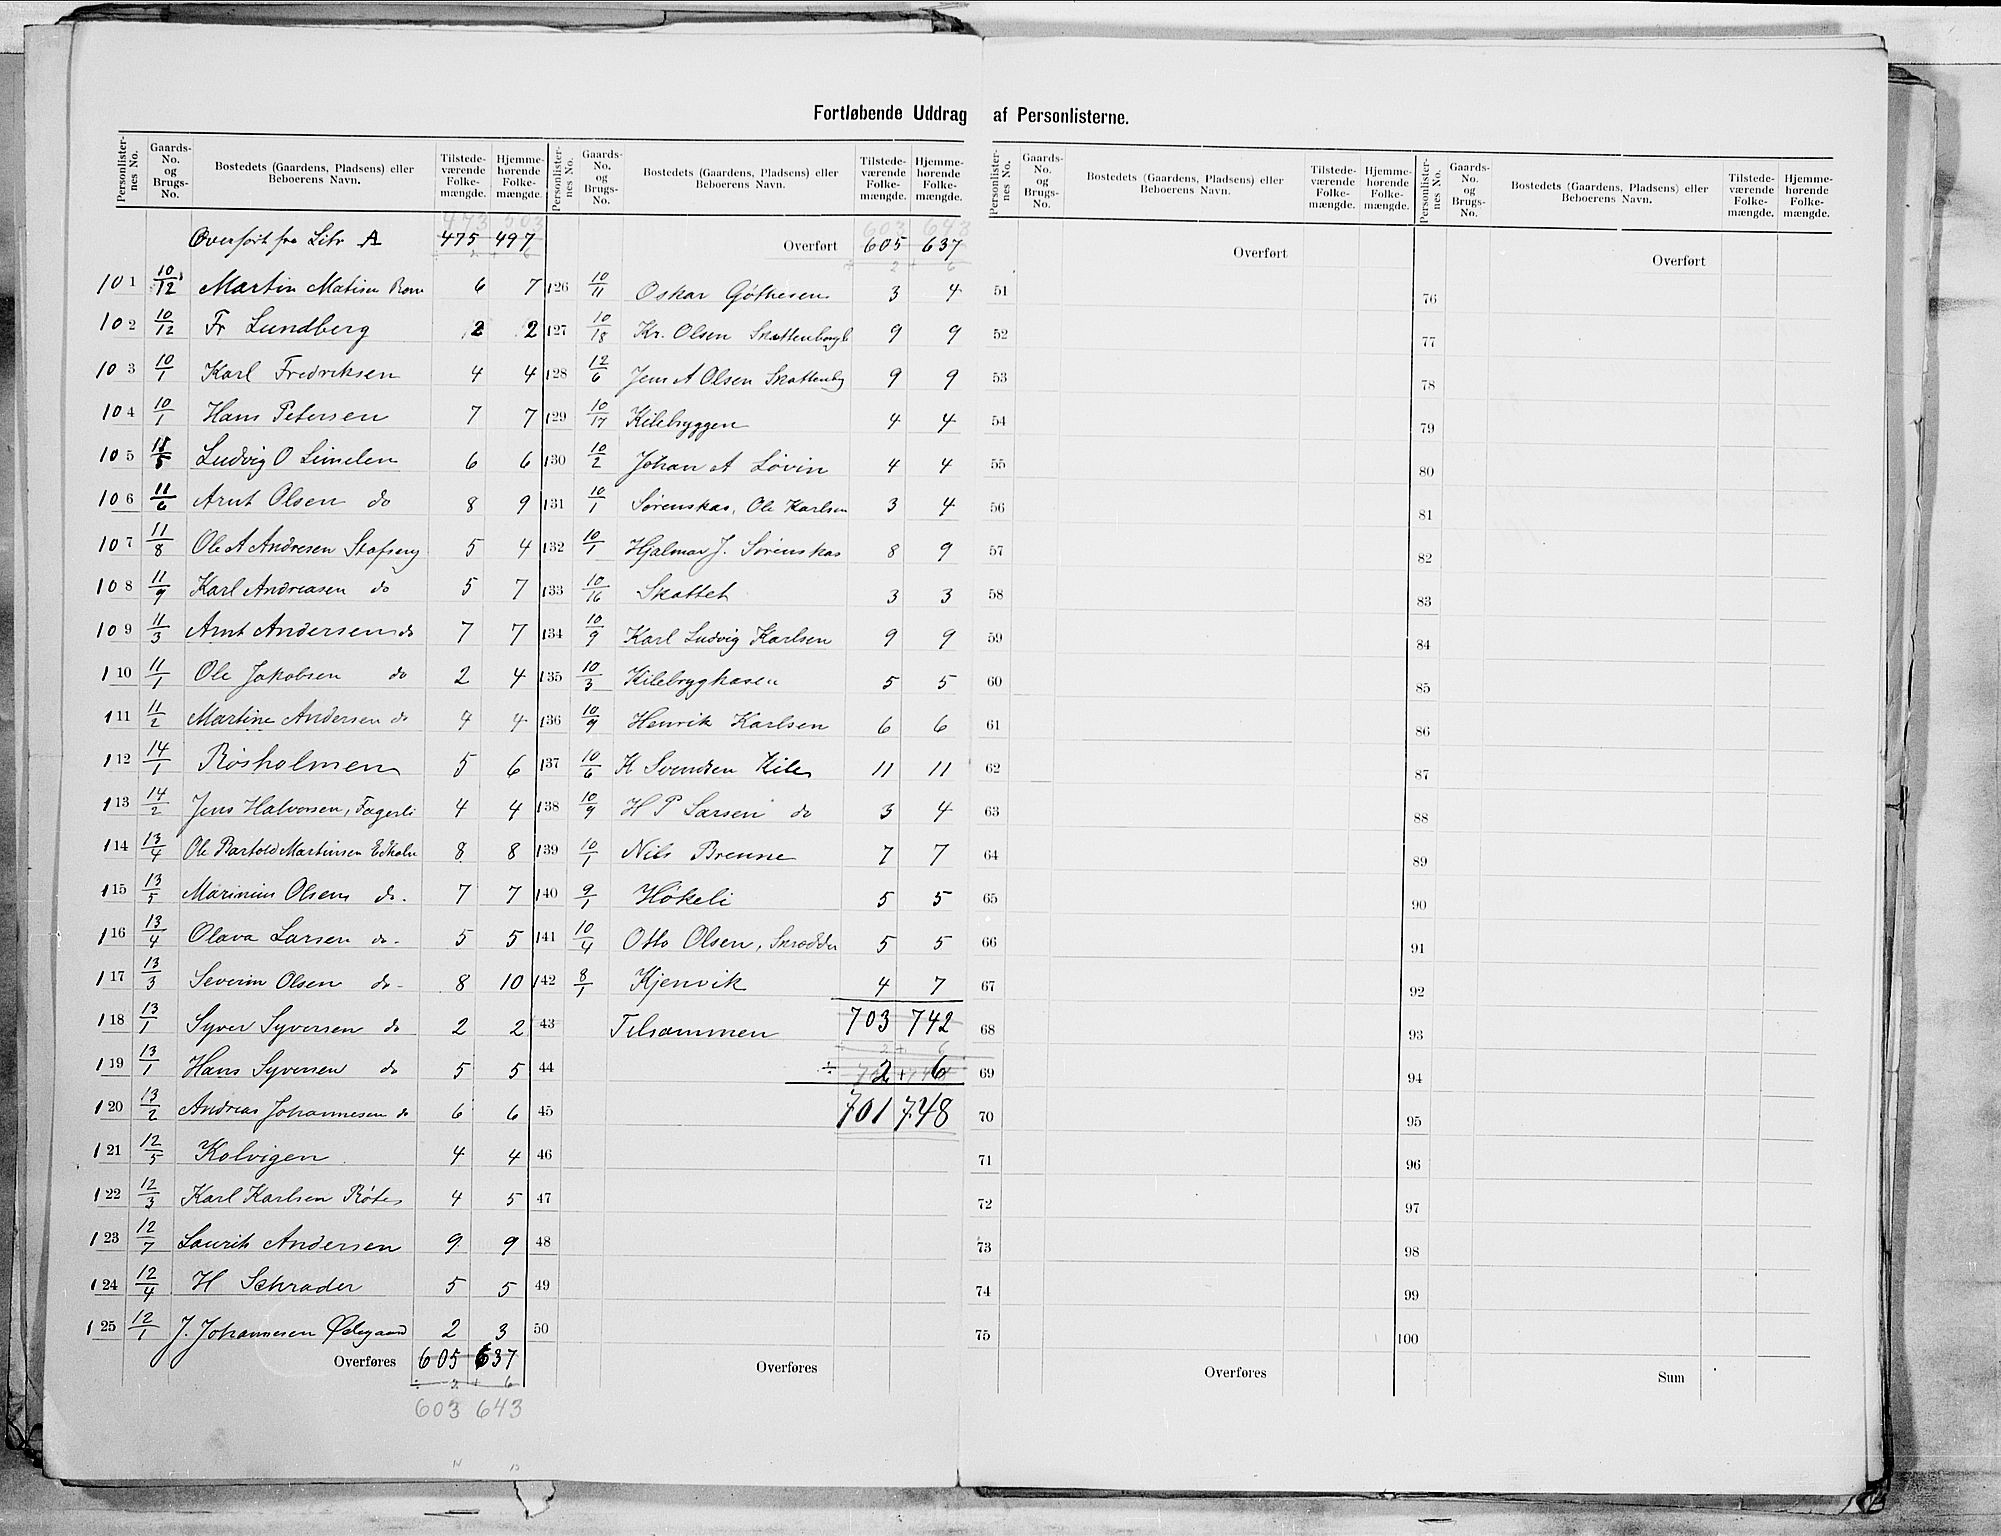 Fortløbende Uddrag af Personlisterne.
Personlisternes No. | Gaards-No. og Brugs-No. | Bostedets (Gaardens, Pladsens) eller Beboerens Navn. | Tilstedeværende Folkemængde. | Hjemmehørende Folkemængde.
473 503
Overført fra Litr A 475 497
÷ 2 + 6
101 10/12 Martin Matisen Rom 6 7
102 10/12 Fr Lundberg 2 2
103 10/1 Karl Fredriksen 4 4
104 10/1 Hans Petersen 7 7
105 11/5 Ludvig O Limelen 6 6
106 11/6 Arnt Olsen do 8 9
107 11/8 Ole A Andresen Stafseng 5 4
108 11/9 Karl Andreasen do 5 7
109 11/3 Arnt Andersen do 7 7
110 11/1 Ole Jakobsen do 2 4
111 11/2 Martine Andersen do 4 4
112 14/1 Røsholmen 5 6
113 14/2 Jens Halvorsen, Fagerli 4 4
114 13/4 Ole Bartold Martinsen Ekholm 8 8
115 13/5 Marinius Olsen do. 7 7
116 13/4 Olava Larsen do. 5 5
117 13/3 Severin Olsen do - 8 10
118 13/1 Syver Syversen do 2 2
119 13/1 Hans Syversen do 5 5
120 13/2 Andreas Johannesen do 6 6
121 12/5 Kolvigen 4 4
122 12/3 Karl Karlsen Røtes 4 5
123 12/7 Laurits Andersen 9 9
124 12/4 H Schrader 5 5
125 12/1 J. Johannesen Ødegaard 2 3
Overføres 605 637
÷ 2 + 6
603 643
Personlisternes No. | Gaards-No. og Brugs-No. | Bostedets (Gaardens, Pladsens) eller Beboerens Navn. | Tilstedeværende Folkemængde. | Hjemmehørende Folkemængde.
603 643
Overført 605 637
÷ 2 + 6
126 10/11 Oskar Gøthesen 3 4
127 10/18 Kr. Olsen 9 9
128 12/6 Jens A Olsen 9 9
129 10/17 Kilebryggen 4 4
130 10/2 Johan A Løvin 4 4
131 10/1 Sørenskas, Ole Karlsen 3 4
132 10/1 Hjalmar J. Sørenskas 8 9
133 10/16 Skattet 3 3
134 10/9 Karl Ludvig Karlsen 9 9
135 10/3 Kilebryghasen 5 5
136 10/9 Henrik Karlsen 6 6
137 10/6 K Svendsen Kile 11 11
138 10/9 H P Larsen do 3 4
139 10/1 Nils Brenne 7 7
140 9/1 Høkeli 5 5
141 10/4 Otto Olsen, Skrædder 5 5
142 8/1 Kjenvik 4 7
43 Tilsammen 703 742
÷ 2 + 6
44 ÷ 2 + 6
45 701 748
46
47
48
49
50
Overføres
Personlisternes No. | Gaards-No. og Brugs-No. | Bostedets (Gaardens, Pladsens) eller Beboerens Navn. | Tilstedeværende Folkemængde. | Hjemmehørende Folkemængde.
Overført
51
52
53
54
55
56
57
58
59
60
61
62
63
64
65
66
67
68
69
70
71
72
73
74
75
Overføres
Personlisternes No. | Gaards-No. og Brugs-No. | Bostedets (Gaardens, Pladsens) eller Beboerens Navn. | Tilstedeværende Folkemængde. | Hjemmehørende Folkemængde.
Overført
76
77
78
79
80
81
82
83
84
85
86
87
88
89
90
91
92
93
94
95
96
97
98
99
100
Sum